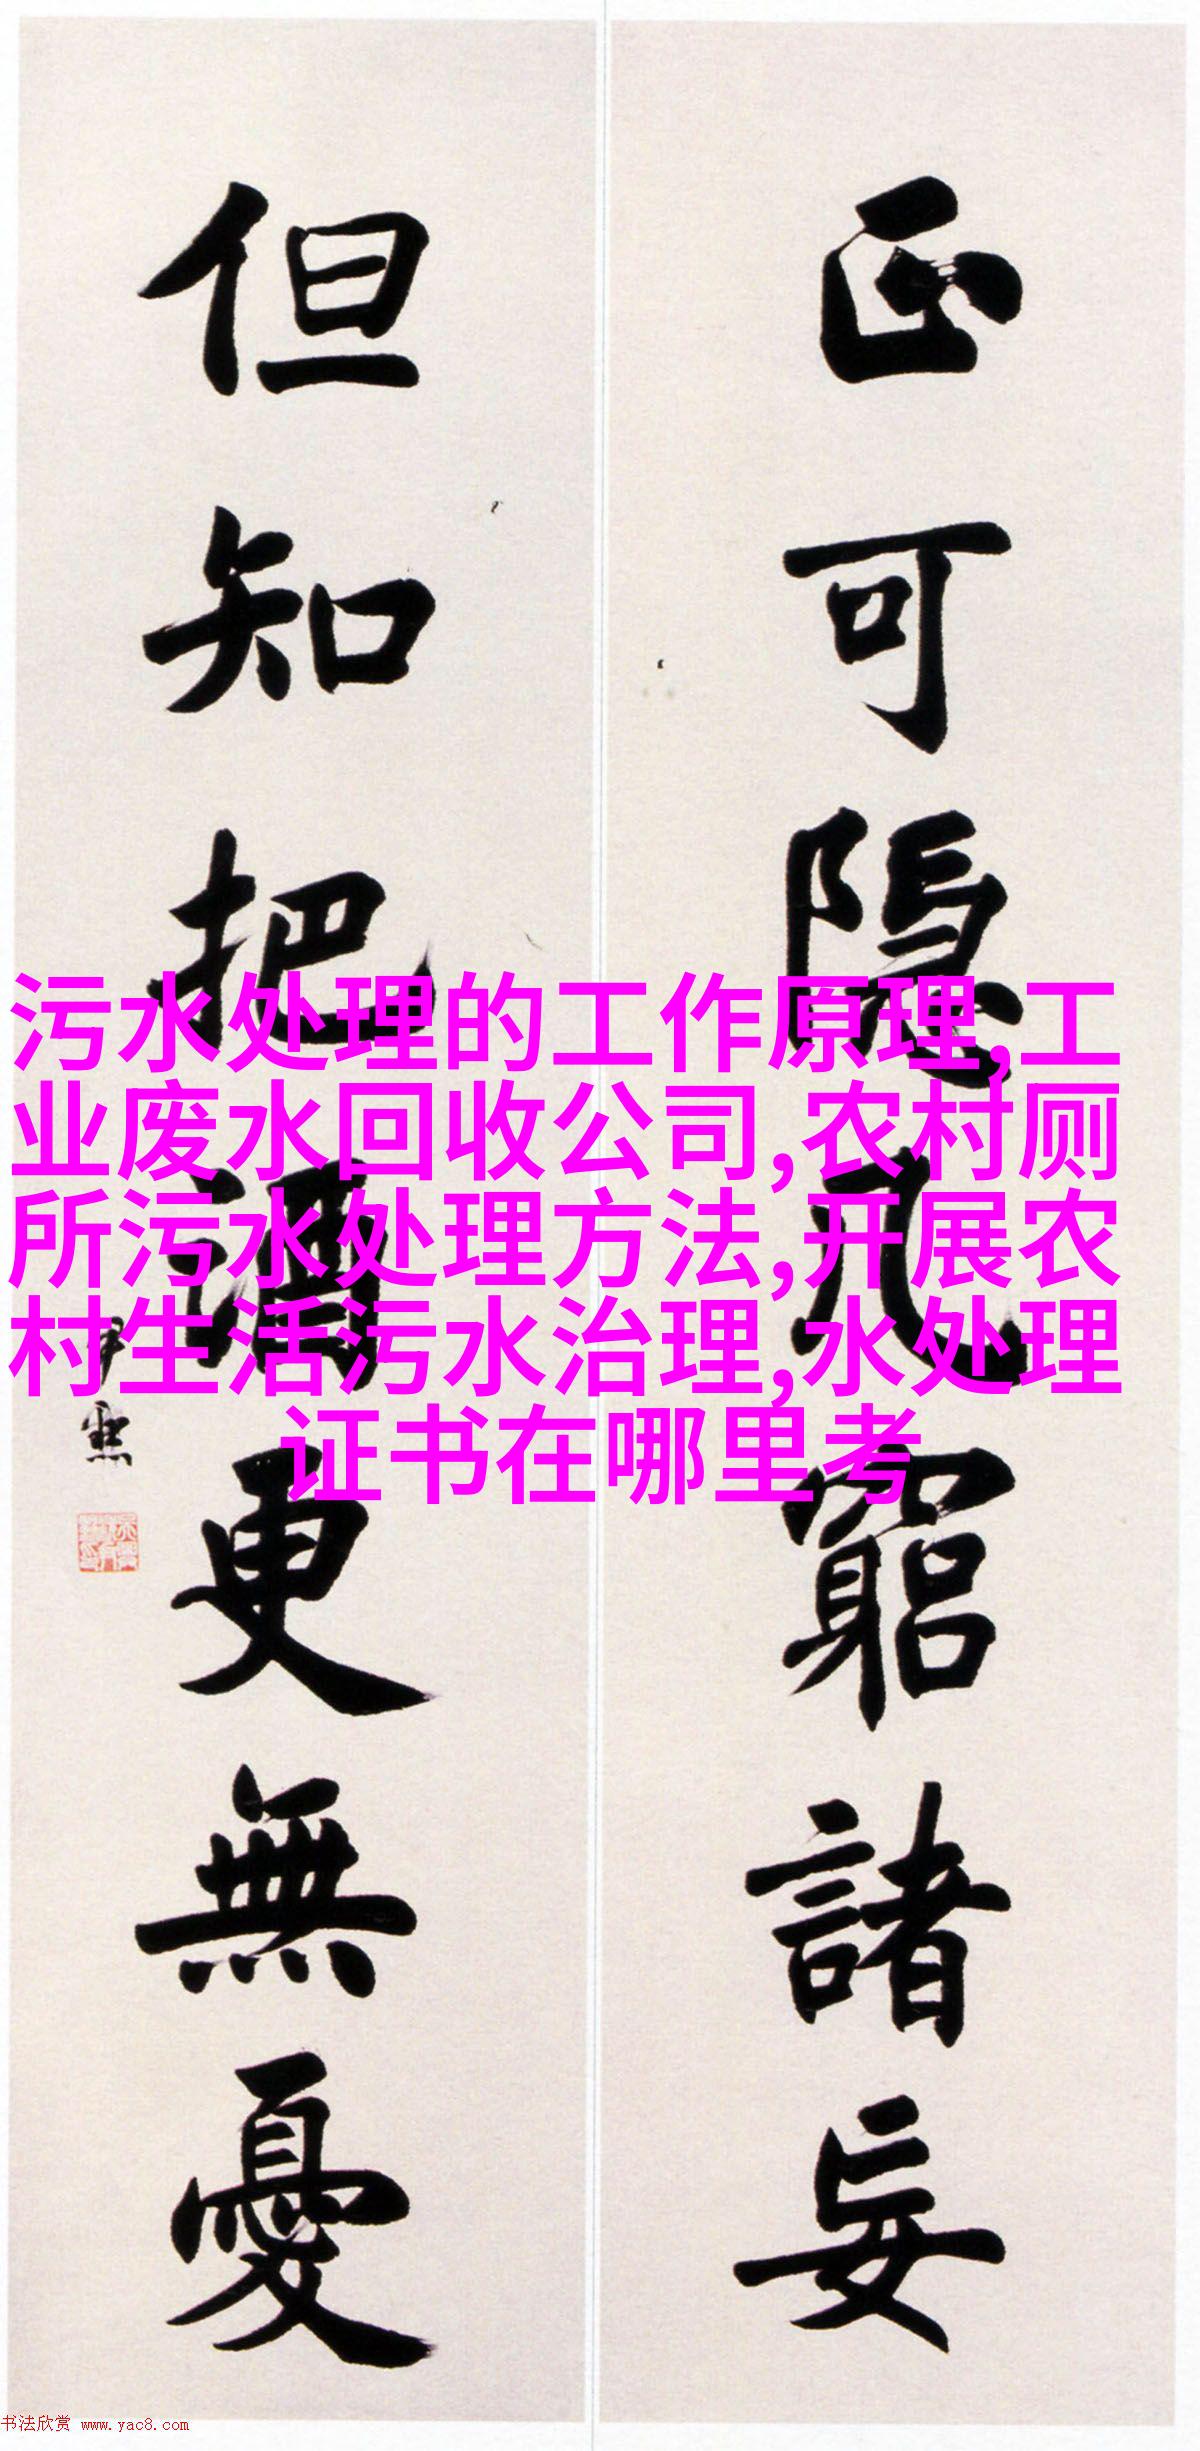 正可隐几窮諸妄
但知把酒更無憂
污水处理的工作原理,工
业废水回收公司,农村厕
所污水处理方法,开展农
村生活污水治理,水处理
证书在哪里考
书法欣赏 www.yac8.com